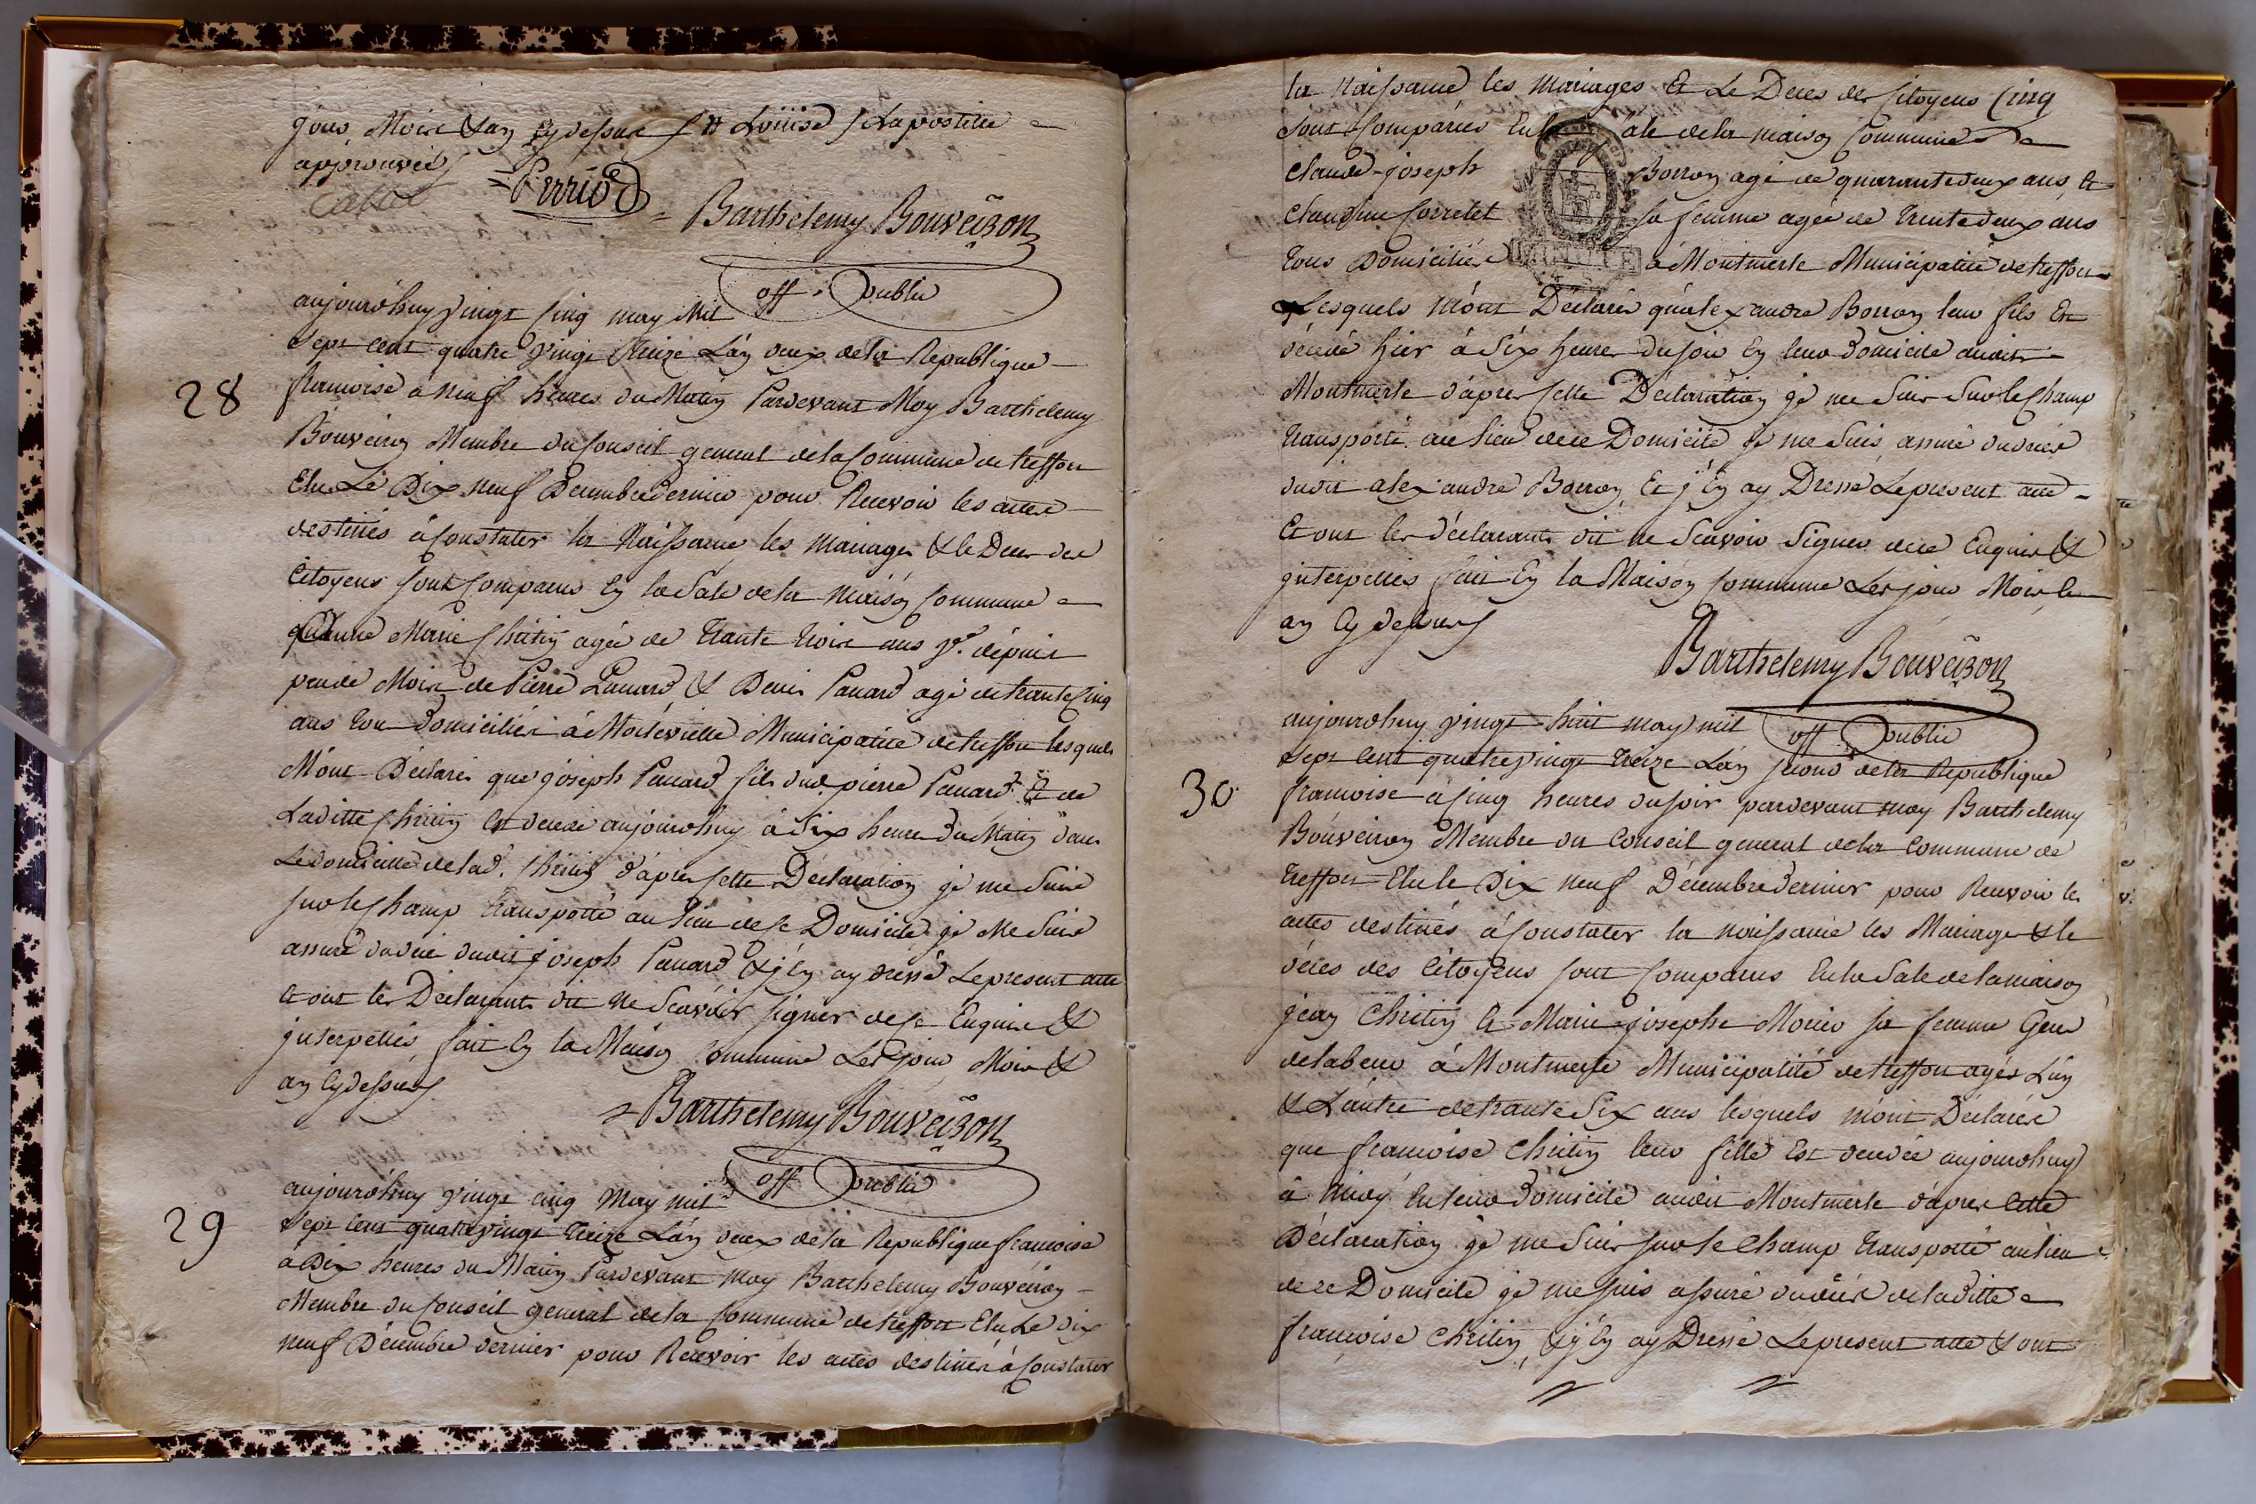 jour Mois & an cy dessus // Louise / La postille
approuvés
Perriod
Barthelemy Bouveiron
off. public
28
aujourdhuy vingt Cinq may Mil
Sept Cent quatre vingt treize L'an deux de la Republique
francoise à neuf heures du Matin Pardevant Moy Barthelemy
Bouveiron Membre du Conseil general de la Commune de treffort
Elu Le Dix neuf Decembre dernier pour Recevoir les actes
destinés à Constater la Naissance les Mariages & le Deces des
Citoyens sont Comparus En la Sale de la Maison Commune
Marie Chritin agée de trante trois ans ve. depuis
peu de Mois de Pierre Panard & Denis Panard agé de trante Cinq
ans tous Domiciliés à Municipalité de treffort lesquels
M'ont Déclarés que joseph Panard fils dud. pierre Panard Et de
Laditte Chritin Est decedé aujourdhuy à Six heure du Matin dans
Le domicille de lad. Chritin d'apres Cette Déclaration je me Suis
Sur le Champ transporté au lieu de Ce Domicile je Me Suis
assuré du décé dudit joseph Panard & j'En ay dressé Le present acte
Et ont les Déclarants dit Ne Scavoir Signer de Ce Enquis &
interpellés fait En la Maison Commune Les jour Mois &
an Cy dessus
Barthelemy Bouveiron
off public
29
aujourdhuy vingt cinq May mil
Sept Cent quatre vingt treize L'an deux de la Republique francoise
à Dix heures du Matin Pardevant Moy Barthelemy Bouveiron
Membre du Conseil general de la Commune de treffort Elu Le dix
neuf Décembre dernier pour Recevoir les actes destinés à Constater
la Naissance les Mariages Et Le Deces des Citoyens Cinq
Sont Comparus En la Sale de la maison Commune
Claude-joseph Borron agé de quarante deux ans &
Claudine Corretet sa femme agée de trente deux ans
tous Domiciliés à Montmerle Municipalité de treffort
Lesquels M'ont Déclarés qu'alexandre Borron leur fils Est
décédé hier à Six heures du soir En leur Domicile audit
Montmerle d'apres Cette Déclaration je me Suis Sur le Champ
transporté au lieu de Ce Domicile je me Suis assuré du décés
dudit alexandre Borron, Et j'En ay Dressé Le present acte
Et ont les déclarants dit Ne Scavoir Signer de Ce Enquis &
interpellés fait En la Maison Commune Les jour Mois &
an Cy dessus
Barthelemy Bouveiron
off public
30
aujourdhuy vingt huit may mil
Sept Cent quatre vingt treize L'an second de la Republique
francoise à Cinq heures du soir pardevant moy Barthelemy
Bouveiron Membre du Conseil general de la Commune de
treffort Elu le Dix neuf Décembre dernier pour Recevoir les
actes destinés à Constater la naissance les Mariages & le
décés des Citoyens sont Comparus En la Sale de la maison
jean Chritin Et Marie-josephe sa femme Gens
de labeur à Montmerle Municipalité de treffort agés L'un
& L'autre de trante Six ans lesquels m'ont Déclarés
que francoise Chritin leur fille Est decedée aujourdhuy
à midy En leur Domicile audit Montmerle d'apres Cette
Déclaration je me Suis Sur le Champ transporté au lieu
de ce Domicile je me suis assuré du décés de laditte
francoise Chritin, & j'En ay Dressé Le present acte & ont